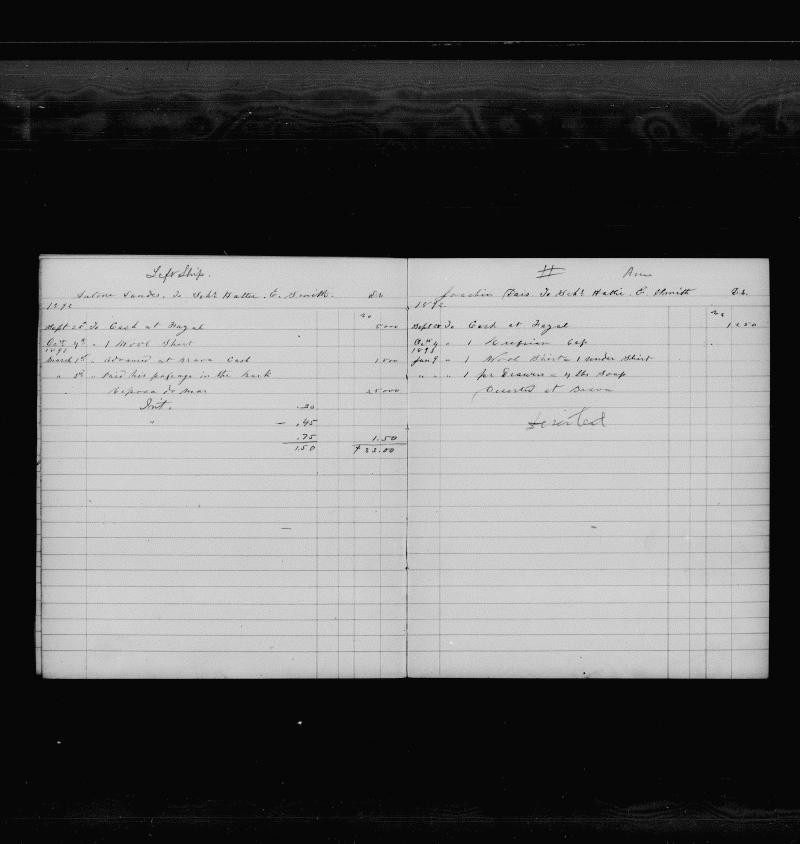 Left Ship.
Antone Landes. To Schr Hattie. E. Smith. Dr.
1892
Sept 28 To Cash at Fayal 5000
Oct 4th " 1 Wool Shirt
1893
March 1st " Advanced at Brava Cash 1500
" 5th " Paid his passage in the bark
25000
Int. .30
" .45
.75 1.50
1.50 $33.00
Joachin To Schr Hattie. E. Smith Dr.
1892
Sept 28 To Cash at Fayal 1250
Oct 4 " 1 Cap
1893
Jany " 1 Wool Shirt = 1 under Shirt
" " " 1 pr Drawers = 4 lbs Soap
Deserted at Brava
Deserted